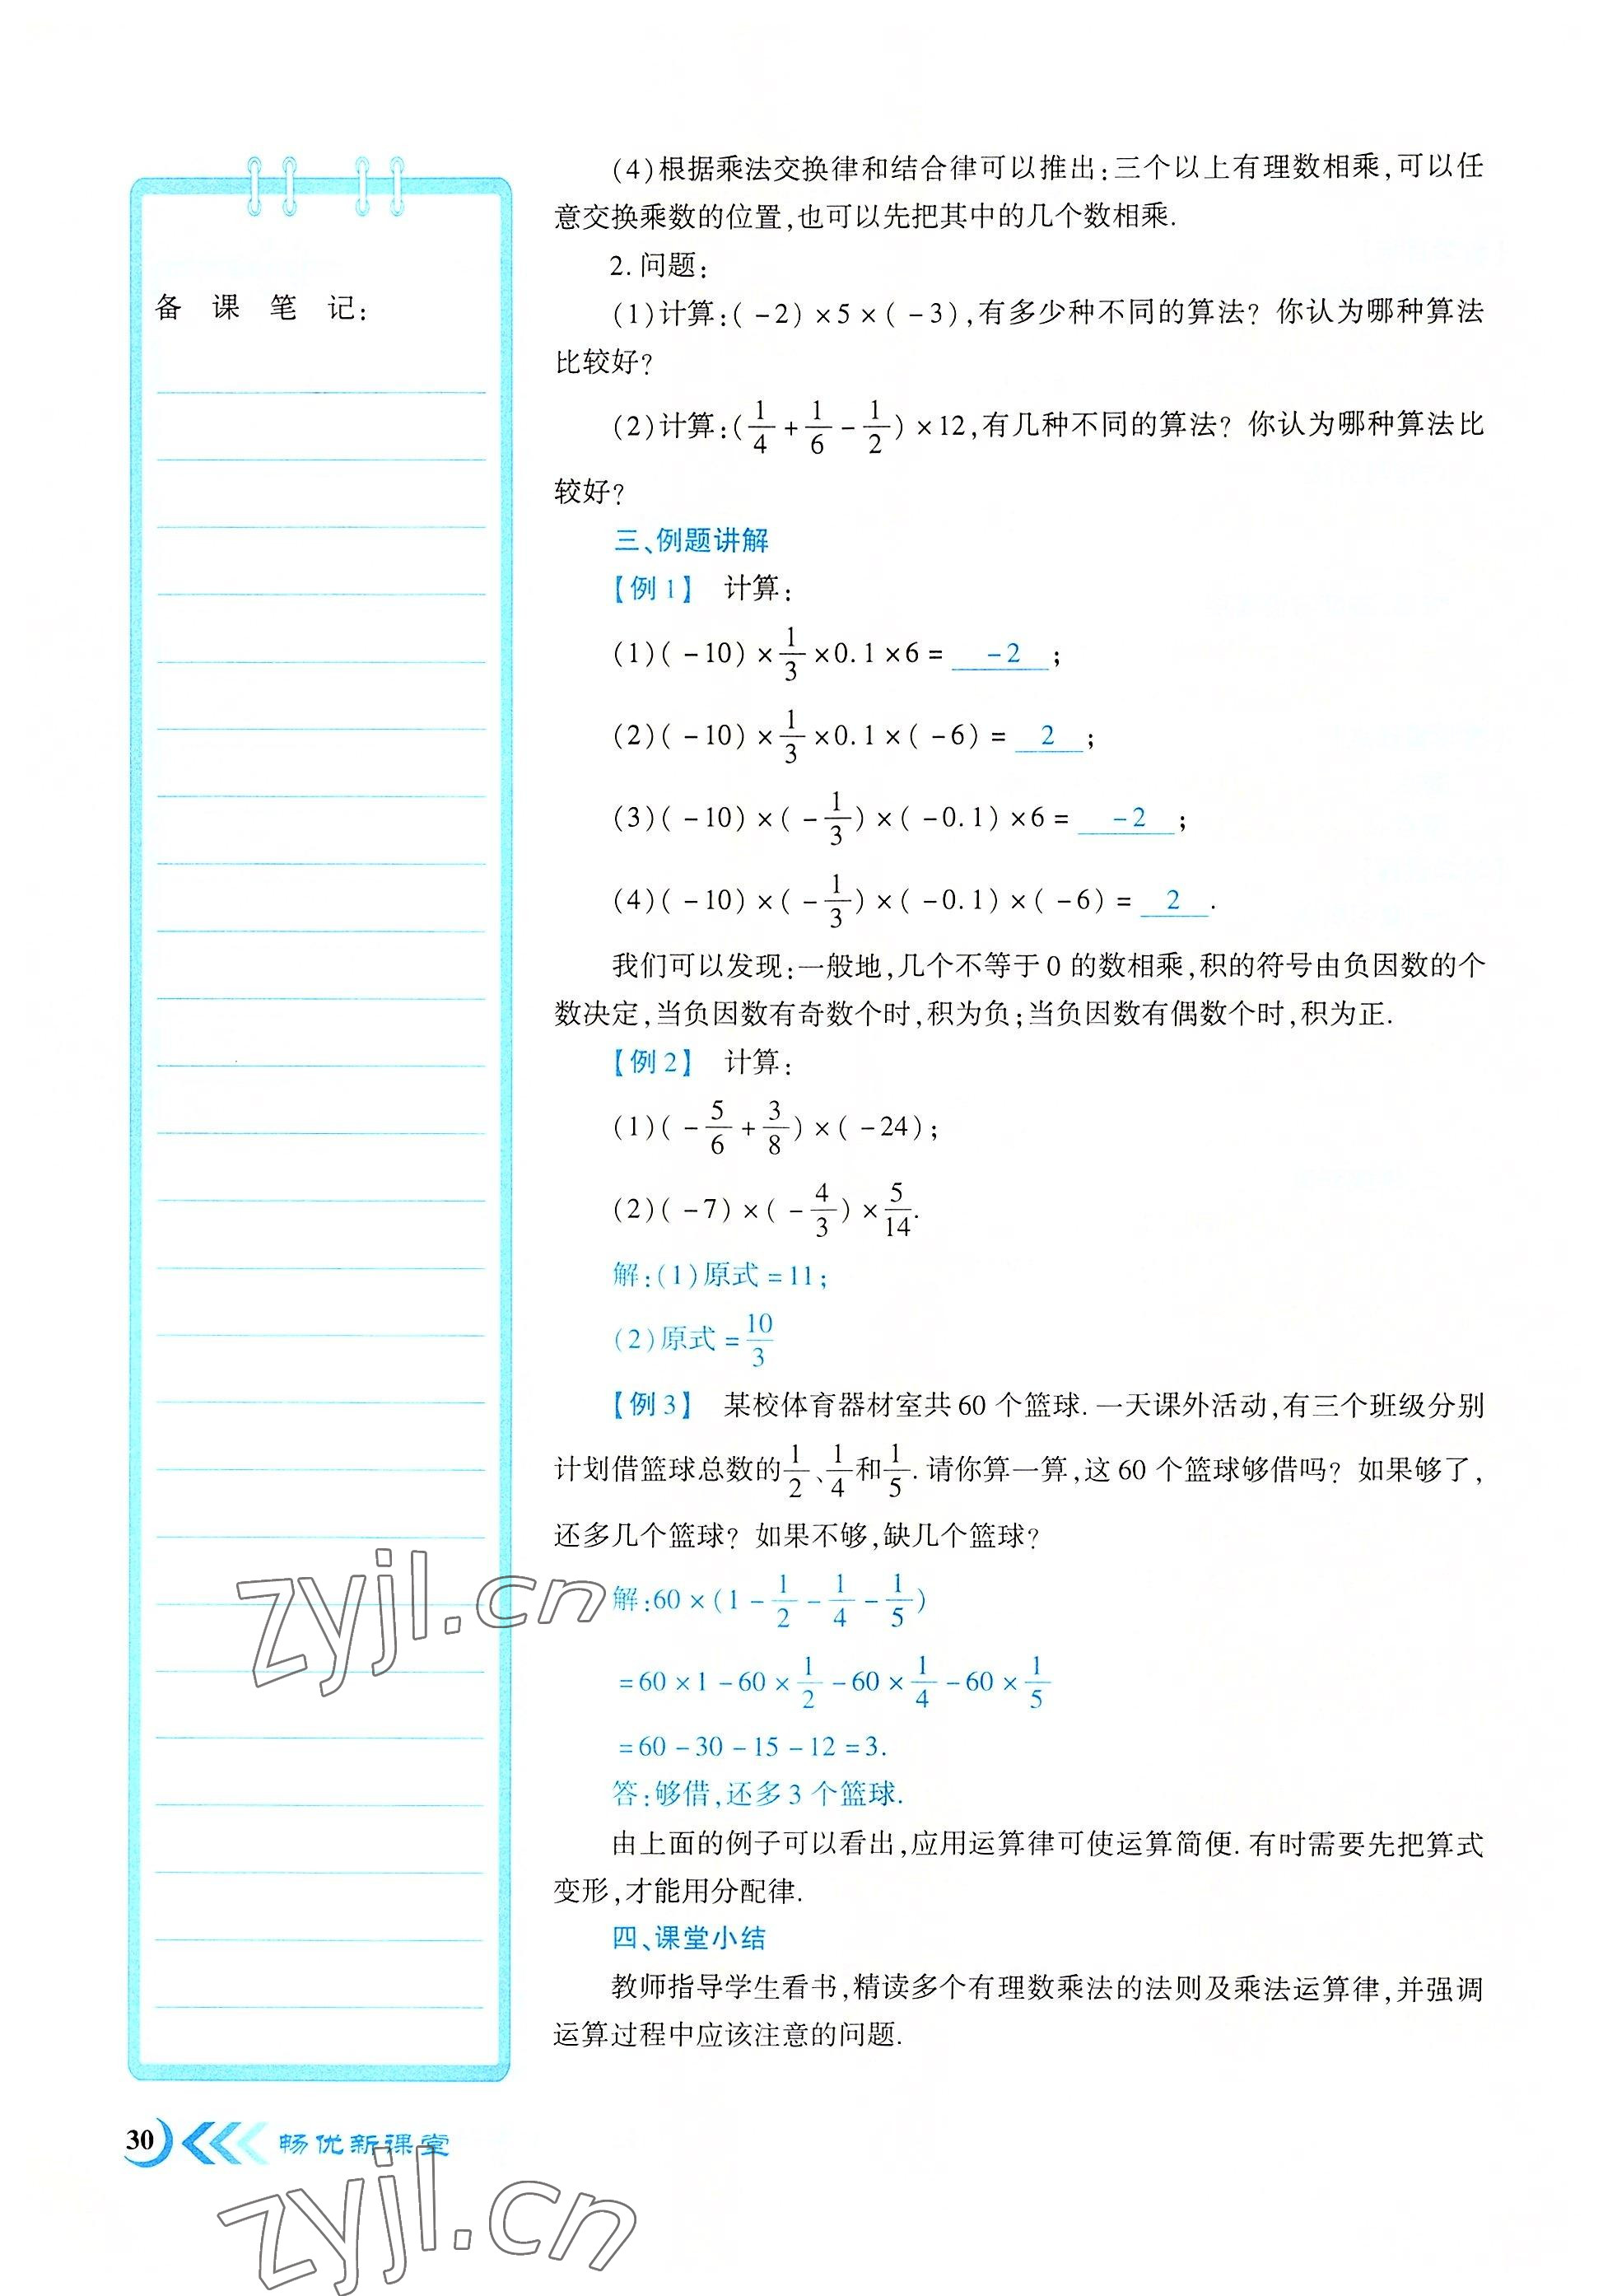 备 课 笔 记:
(4)根据乘法交换律和结合律可以推出:三个以上有理数相乘,可以任
意交换乘数的位置,也可以先把其中的几个数相乘.
2. 问题:
(1)计算:(-2)×5×(-3),有多少种不同的算法? 你认为哪种算法
比较好?
(2)计算:(1/4+1/6-1/2)×12,有几种不同的算法? 你认为哪种算法比
较好?
三、例题讲解
【例1】 计算:
(1)(-10)×1/3×0.1×6= -2 ;
(2)(-10)×1/3×0.1×(-6)= 2 ;
(3)(-10)×(-1/3)×(-0.1)×6= -2 ;
(4)(-10)×(-1/3)×(-0.1)×(-6)= 2 .
我们可以发现:一般地,几个不等于0的数相乘,积的符号由负因数的个
数决定,当负因数有奇数个时,积为负;当负因数有偶数个时,积为正.
【例2】 计算:
(1)(-5/6+3/8)×(-24);
(2)(-7)×(-4/3)×5/14.
解:(1)原式=11;
(2)原式=10/3
【例3】 某校体育器材室共60个篮球. 一天课外活动,有三个班级分别
计划借篮球总数的1/2、1/4和1/5. 请你算一算,这60个篮球够借吗? 如果够了,
还多几个篮球? 如果不够,缺几个篮球?
解:60×(1-1/2-1/4-1/5)
=60×1-60×1/2-60×1/4-60×1/5
=60-30-15-12=3.
答:够借,还多3个篮球.
由上面的例子可以看出,应用运算律可使运算简便. 有时需要先把算式
变形,才能用分配律.
四、课堂小结
教师指导学生看书,精读多个有理数乘法的法则及乘法运算律,并强调
运算过程中应该注意的问题.
zyjl.cn
30 畅优新课堂
zyjl.cn